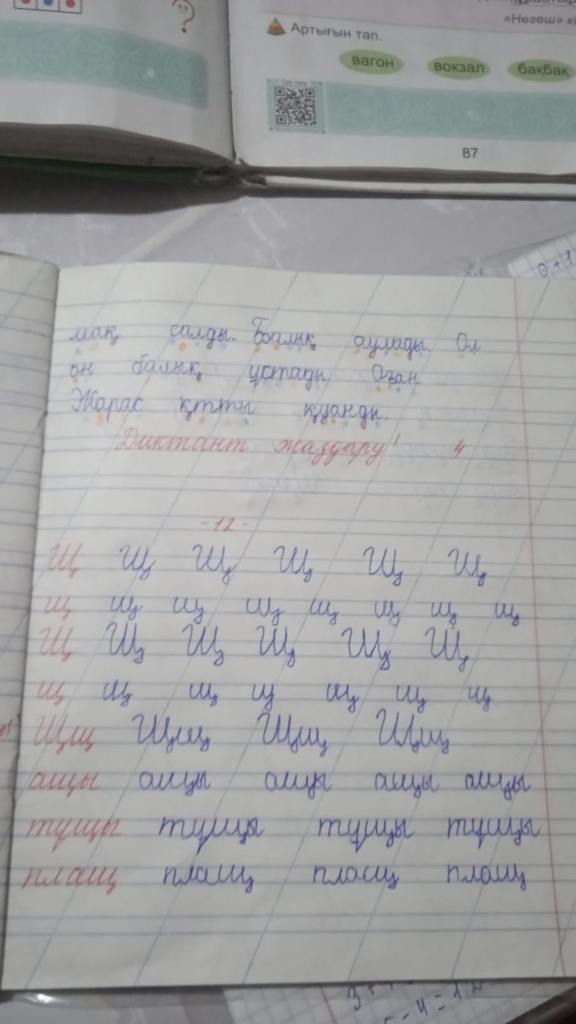 «Негеш»
Артығын тап.
вагон вокзал бақбақ
87
мақ салды. Балық аулады. Ол
он балық ұстады. Оған
Жарас қтты қуанды.
Диктант жаздыру! 4
-12-
Щ Щ Щ Щ Щ Щ
щ щ щ щ щ щ щ щ
Щ Щ Щ Щ Щ Щ
щ щ щ щ щ щ щ
Щщ Щщ Щщ Щщ
ащы ащы ащы ащы ащы
тущы тущы тущы тущы
плащ плащ плащ плащ